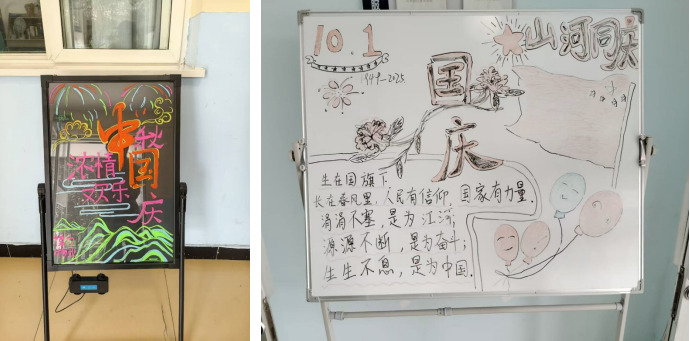 中秋
国庆
浓情
欢乐
10.1
1949-2025
国庆
山河同庆
生在国旗下,
长在春风里,人民有信仰,国家有力量.
涓涓不塞,是为江河;
源源不断,是为奋斗;
生生不息,是为中国.